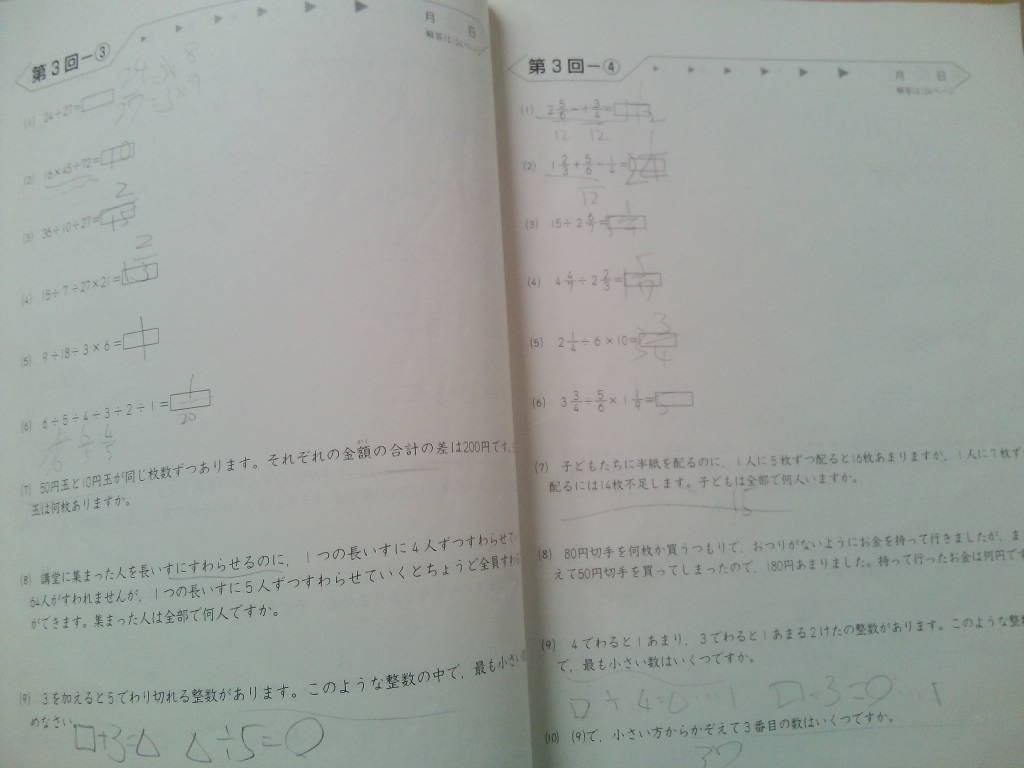 第3回-③
月 日
24 3×8
27 3×9
(1) 24÷27=
(2) 16×45÷72= 10
(3) 36÷10÷27= 2/15
(4) 15÷7÷27×21=
(5) 9÷18÷3×6=
(6) 6÷5÷4÷3÷2÷1= 1/20
(7) 50円玉と10円玉が同じ枚数ずつあります。それぞれの金額の合計の差は200円です。
玉は何枚ありますか。
(8) 講堂に集まった人を長いすにすわらせるのに,1つの長いすに4人ずつすわらせて
64人がすわれませんが,1つの長いすに5人ずつすわらせていくとちょうど全員すわ
ができます。集まった人は全部で何人ですか。
(9) 3を加えると5でわり切れる整数があります。このような整数の中で,最も小さい
めなさい。
□+3=△ △÷5=○
第3回-④
月 日
(1) 2 5/6 - 1 3/4 =
12 12
(2) 1 2/3 + 5/6 - 1/4 =
12
(3) 15÷2 6/7 =
(4) 4 4/9 ÷ 2 2/3 =
(5) 2 1/4 ÷6×10= 3 3/4
(6) 3 3/4 ÷ 5/6 × 1 1/9 = 5
(7) 子どもたちに半紙を配るのに,1人に5枚ずつ配ると16枚あまりますが,1人に7枚ず
配るには14枚不足します。子どもは全部で何人いますか。
15
(8) 80円切手を何枚か買うつもりで,おつりがないようにお金を持って行きましたが,ま
えて50円切手を買ってしまったので,180円あまりました。持って行ったお金は何円です
(9) 4でわると1あまり,3でわると1あまる2けたの整数があります。このような整数
で,最も小さい数はいくつですか。
□÷4=△…1 □÷3=○…1
(10) (9)で,小さい方からかぞえて3番目の数はいくつですか。